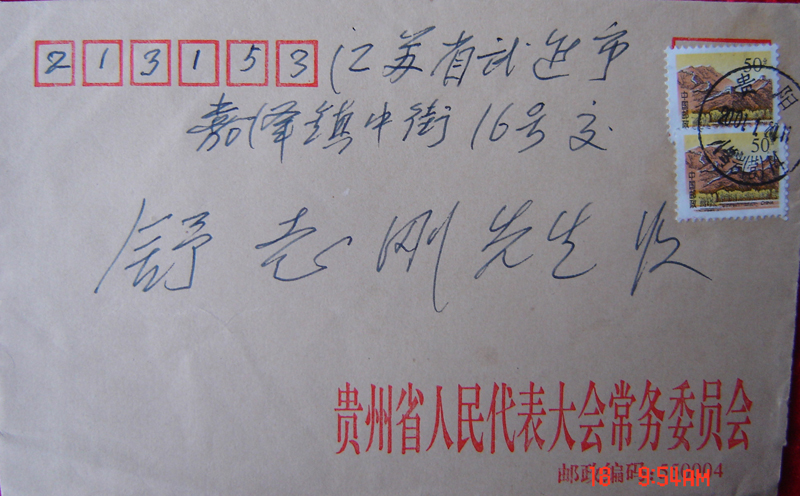 213153 江苏省武进市
嘉泽镇中街16号交
舒志刚先生收
50
50
贵阳
贵州省人民代表大会常务委员会
邮政编码:550004
16 9:54AM